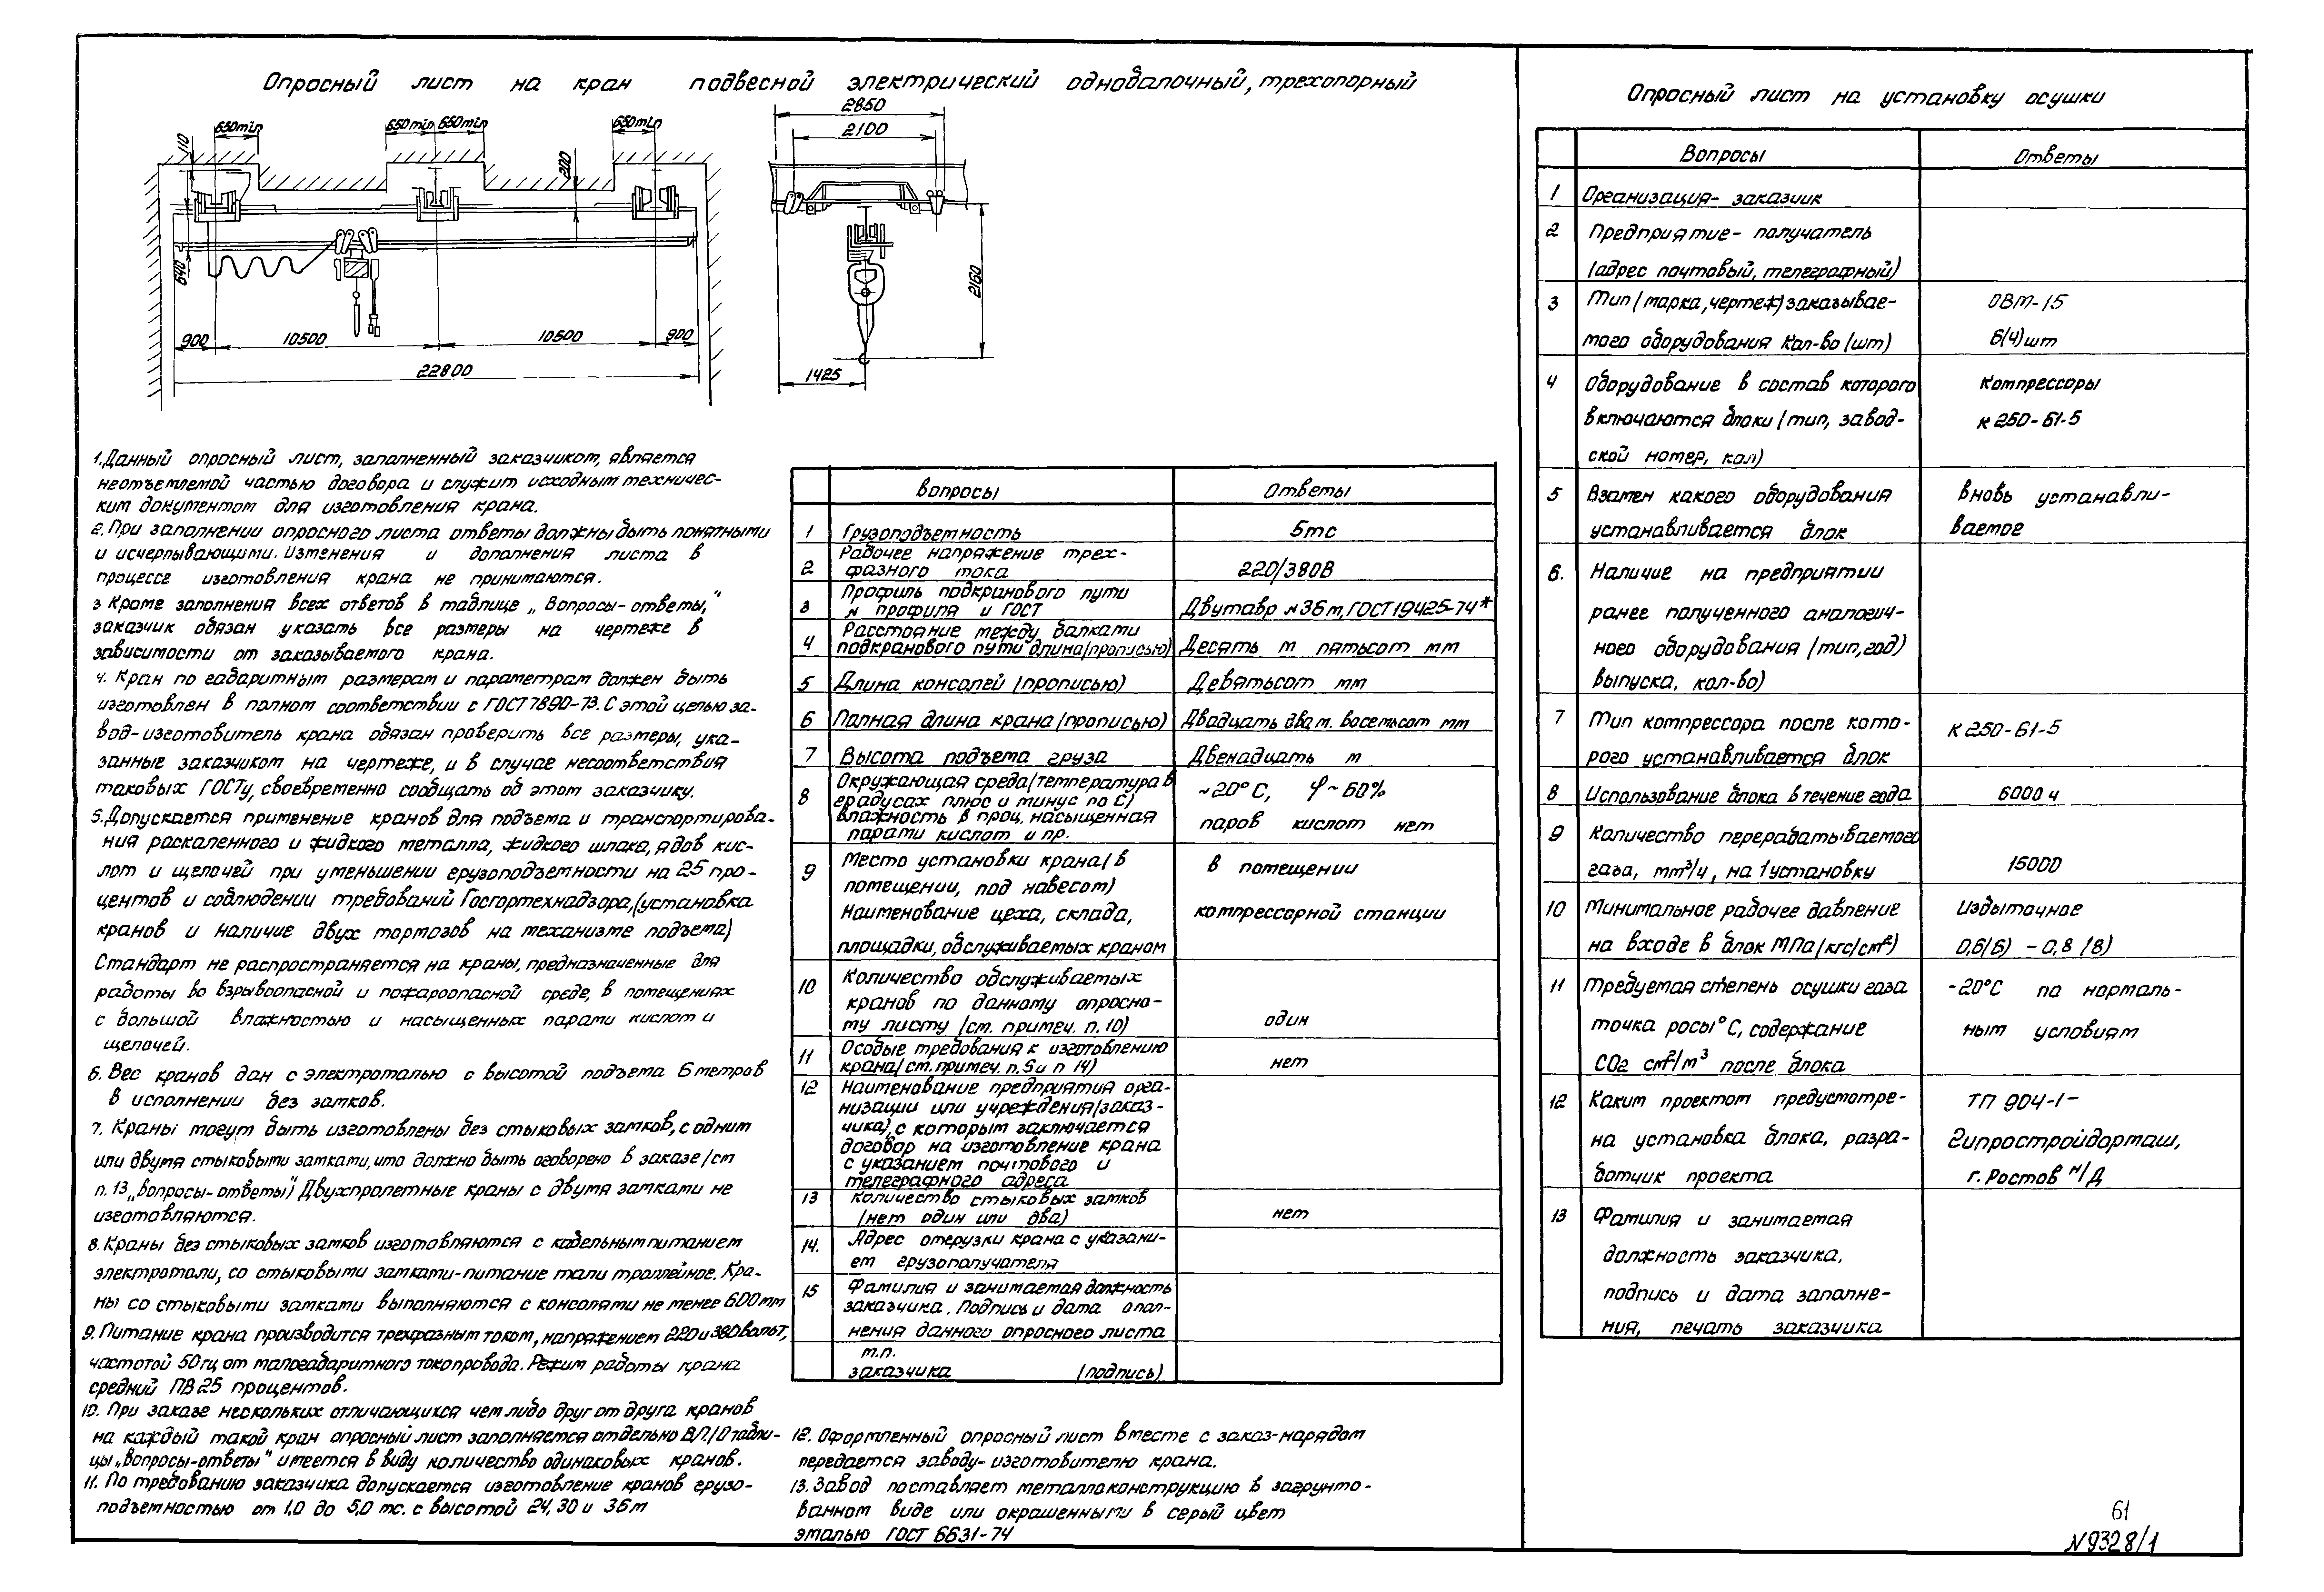 Опросный лист на кран подвесной электрический однобалочный, трехопорный
650min
650min
650min
650min
110
200
640
900
10500
10500
900
22800
2850
2100
2160
1425
1. Данный опросный лист, заполненный заказчиком, является
неотъемлемой частью договора и служит исходным техничес-
ким документом для изготовления крана.
2. При заполнении опросного листа ответы должны быть понятными
и исчерпывающими. Изменения и дополнения листа в
процессе изготовления крана не принимаются.
3 Кроме заполнения всех ответов в таблице „Вопросы-ответы,"
заказчик обязан указать все размеры на чертеже в
зависимости от заказываемого крана.
4. Кран по габаритным размерам и параметрам должен быть
изготовлен в полном соответствии с ГОСТ 7890-73. С этой целью за-
вод-изготовитель крана обязан проверить все размеры, ука-
занные заказчиком на чертеже, и в случае несоответствия
таковых ГОСТу, своевременно сообщать об этом заказчику.
5. Допускается применение кранов для подъема и транспортирова-
ния раскаленного и жидкого металла, жидкого шлака, ядов кис-
лот и щелочей при уменьшении грузоподъемности на 25 про-
центов и соблюдении требований Госгортехнадзора, (установка
кранов и наличие двух тормозов на механизме подъема)
Стандарт не распространяется на краны, предназначенные для
работы во взрывоопасной и пожароопасной среде, в помещениях
с большой влажностью и насыщенных парами кислот и
щелочей.
6. Вес кранов дан с электроталью с высотой подъема 6 метров
в исполнении без замков.
7. Краны могут быть изготовлены без стыковых замков, с одним
или двумя стыковыми замками, что должно быть оговорено в заказе /см
п. 13 „вопросы-ответы") Двухпролетные краны с двумя замками не
изготовляются.
8. Краны без стыковых замков изготовляются с кабельным питанием
электротали, со стыковыми замками-питание тали троллейное. Кра-
ны со стыковыми замками выполняются с консолями не менее 600 мм
9. Питание крана производится трехфазным током, напряжением 220 и 380 вольт,
частотой 50 гц от малогабаритного токопровода. Режим работы крана
средний ПВ 25 процентов.
10. При заказе нескольких отличающихся чем либо друг от друга кранов
на каждый такой кран опросный лист заполняется отдельно В П.10 табли-
цы „Вопросы-ответы" имеется в виду количество одинаковых кранов.
11. По требованию заказчика допускается изготовление кранов грузо-
подъемностью от 1,0 до 5,0 тс. с высотой 24, 30 и 36 м
Вопросы Ответы
1 Грузоподъемность 5тс
2 Рабочее напряжение трех-
фазного тока 220/380В
3 Профиль подкранового пути
N профиля и ГОСТ Двутавр N36м, ГОСТ 19425-74*
4 Расстояние между балками
подкранового пути длина (прописью) Десять м пятьсот мм
5 Длина консолей (прописью) Девятьсот мм
6 Полная длина крана (прописью) Двадцать два м. восемьсот мм
7 Высота подъема груза Двенадцать м
8 Окружающая среда (температура в ~20°С, φ~60%
градусах плюс и минус по С)
влажность в проц. насыщенная паров кислот нет
парами кислот и пр.
9 Место установки крана (в в помещении
помещении, под навесом)
Наименование цеха, склада, компрессорной станции
площадки, обслуживаемых краном
10 Количество обслуживаемых
кранов по данному опросно-
му листу (см. примеч. п. 10) один
11 Особые требования к изготовлению
крана (см. примеч. п. 5 и п 14) нет
12 Наименование предприятия орга-
низации или учреждения (заказ-
чика), с которым заключается
договор на изготовление крана
с указанием почтового и
телеграфного адреса
13 Количество стыковых замков
(нет один или два) нет
14. Адрес отгрузки крана с указани-
ем грузополучателя
15 Фамилия и занимаемая должность
заказчика. Подпись и дата опол-
нения данного опросного листа
м.п.
заказчика (подпись)
12. Оформленный опросный лист вместе с заказ-нарядом
передается заводу-изготовителю крана.
13. Завод поставляет металлоконструкцию в загрунто-
ванном виде или окрашенными в серый цвет
эмалью ГОСТ 6631-74
Опросный лист на установку осушки
Вопросы Ответы
1 Организация-заказчик
2 Предприятие-получатель
(адрес почтовый, телеграфный)
3 Тип (марка, чертеж) заказывае- ОВМ-15
мого оборудования Кол-во (шт) 6(4)шт
4 Оборудование в состав которого Компрессоры
включаются блоки (тип, завод- К 250-61-5
ской номер, кол)
5 Взамен какого оборудования вновь устанавли-
устанавливается блок ваемое
6. Наличие на предприятии
ранее полученного аналогич-
ного оборудования (тип, год)
выпуска, кол-во)
7 Тип компрессора после кото- К 250-61-5
рого устанавливается блок
8 Использование блока в течение года 6000 ч
9 Количество перерабатываемого
газа, нм³/ч, на 1 установку 15000
10 Минимальное рабочее давление Избыточное
на входе в блок МПа (кгс/см²) 0,6(6) - 0,8 (8)
11 Требуемая степень осушки газа -20°С по нормаль-
точка росы °С, содержание ным условиям
СО₂ см³/м³ после блока
12 Каким проектом предусмотре- ТП 904-1-
на установка блока, разра- Гипростройдормаш,
ботчик проекта г. Ростов н/Д
13 Фамилия и занимаемая
должность заказчика,
подпись и дата заполне-
ния, печать заказчика
61
N9328/1